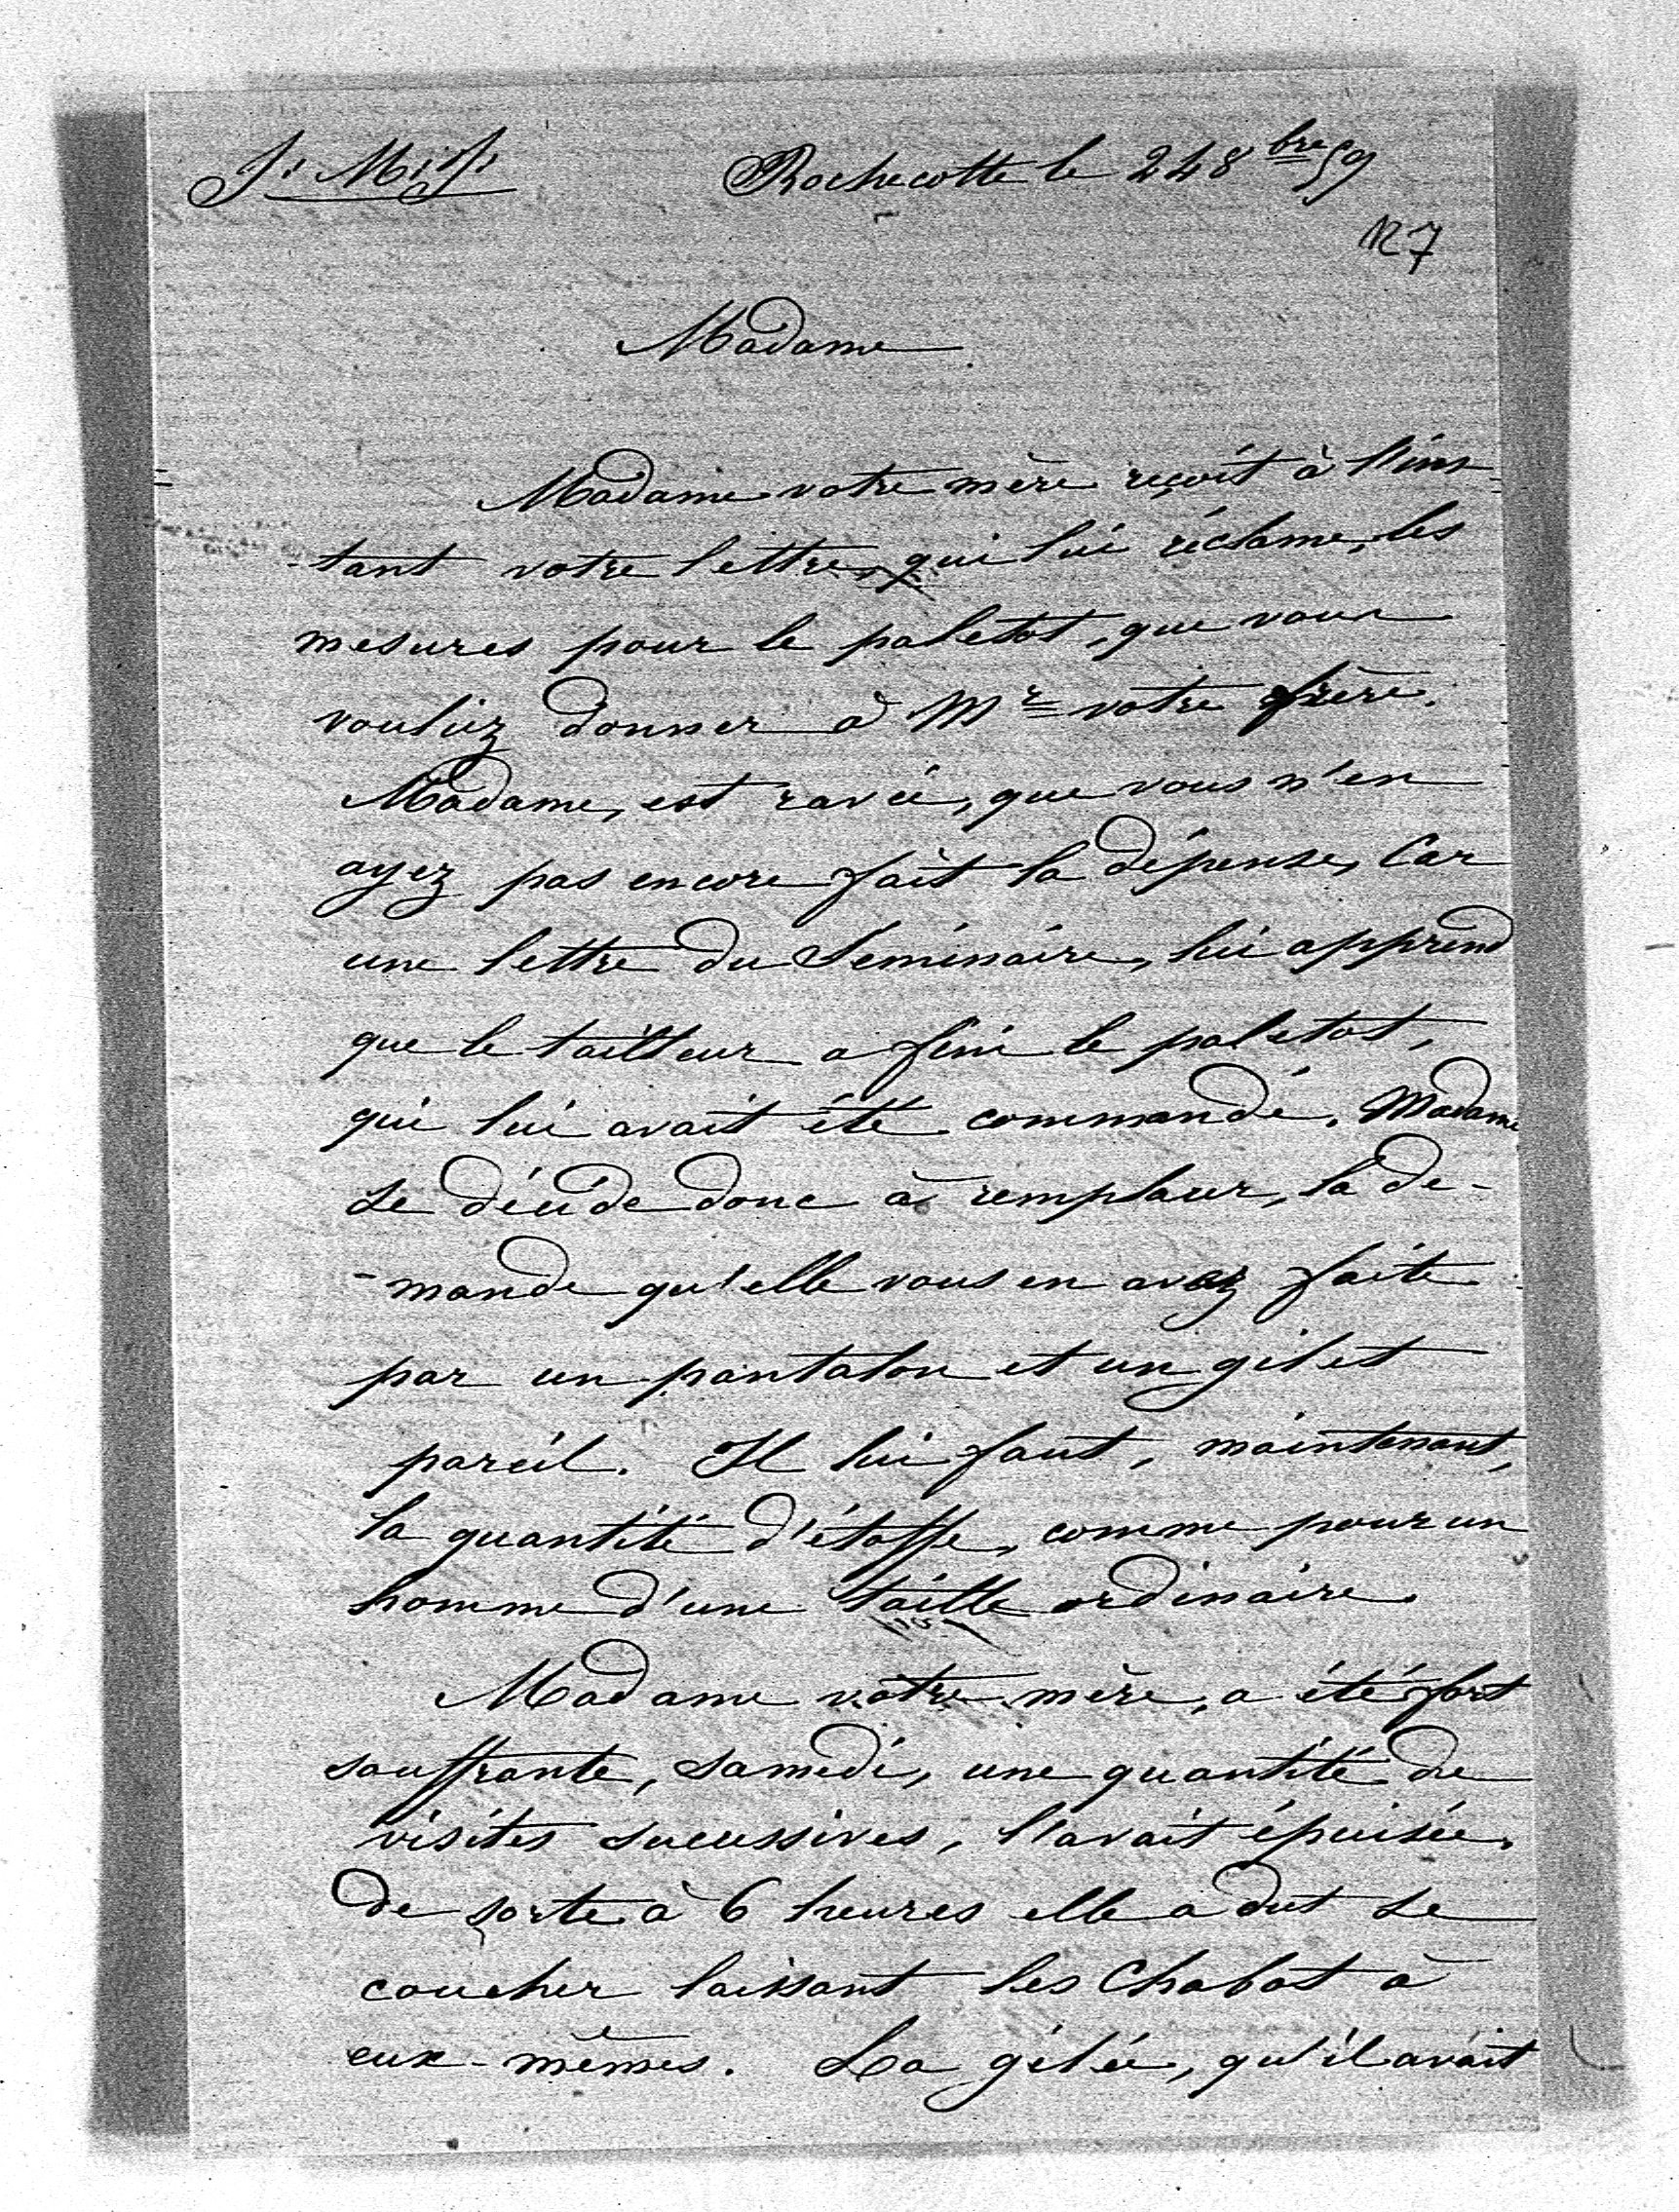 J. M. J. Rochecotte le 24 8bre 59
127
Madame
Madame votre mère reçoit à l'ins
-tant votre lettre, qui lui réclame, les
mesures pour le paletot, que vous
vouliez donner à Mr votre frère.
Madame, est ravie, que vous n'en
ayez pas encore fait la dépense, Car
une lettre du Seminaire, lui apprend
que le tailleur a fini le paletot,
qui lui avait été commandé. Madame
se décide donc à remplacer, la de-
-mande qu'elle vous en avez faite
par un pantalon et un gilet
pareil. Il lui faut, maintenant,
la quantité d'étoffe, comme pour un
homme d'une taille ordinaire.
Madame votre mère, a été fort
souffrante, samedi, une quantité de
visites sucessives, l'avait épuisée,
de sorte à 6 heures elle a dut se
coucher laissant les Chabot à
eux-mêmes. La gelée, qu'il avait